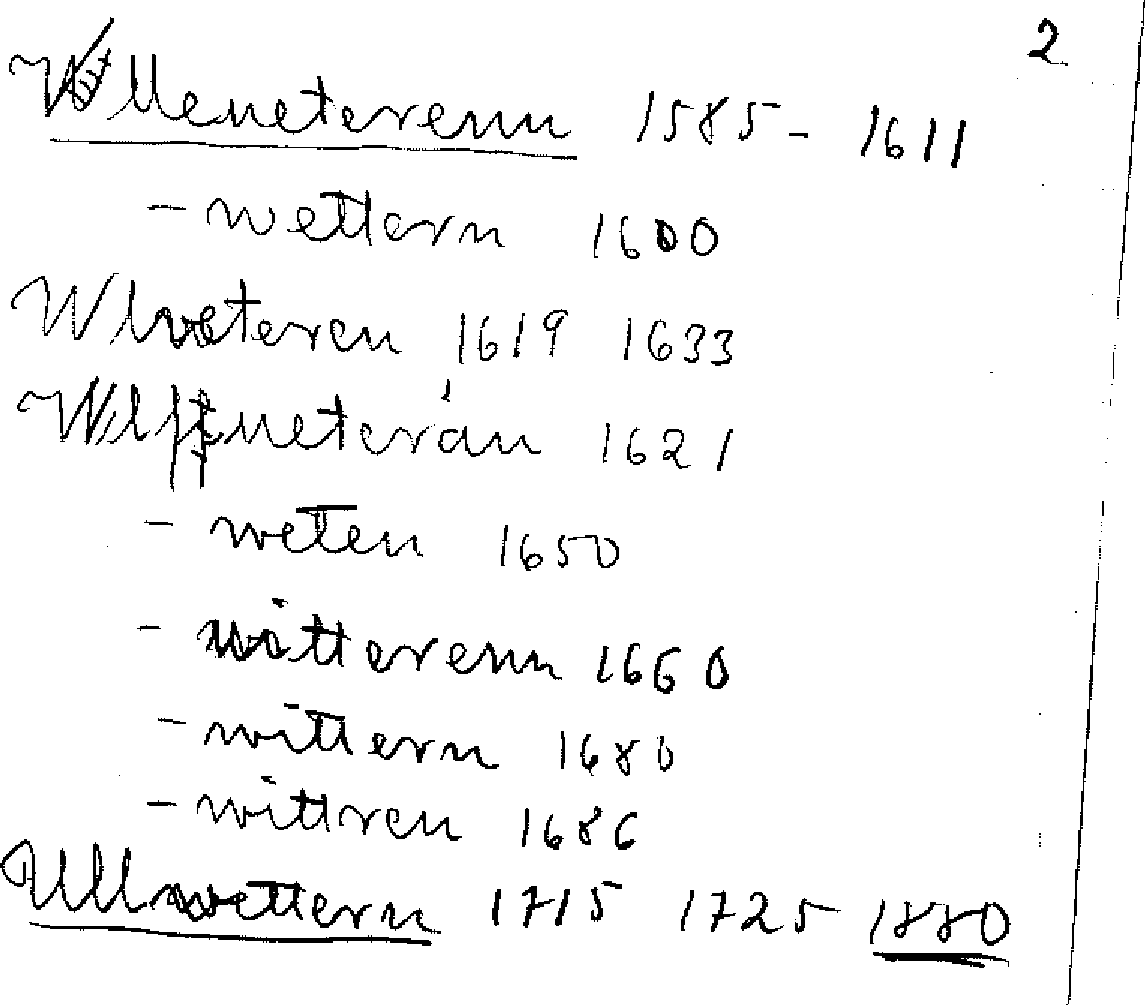 2
Wlleueterenn 1585 - 1611
- wettern 1600
Wlveteren 1619 1633
Wlffueterån 1621
- weten 1650
- witterenn 1660
- wittern 1680
- wittren 1686
Ullwettern 1715 1725 1880